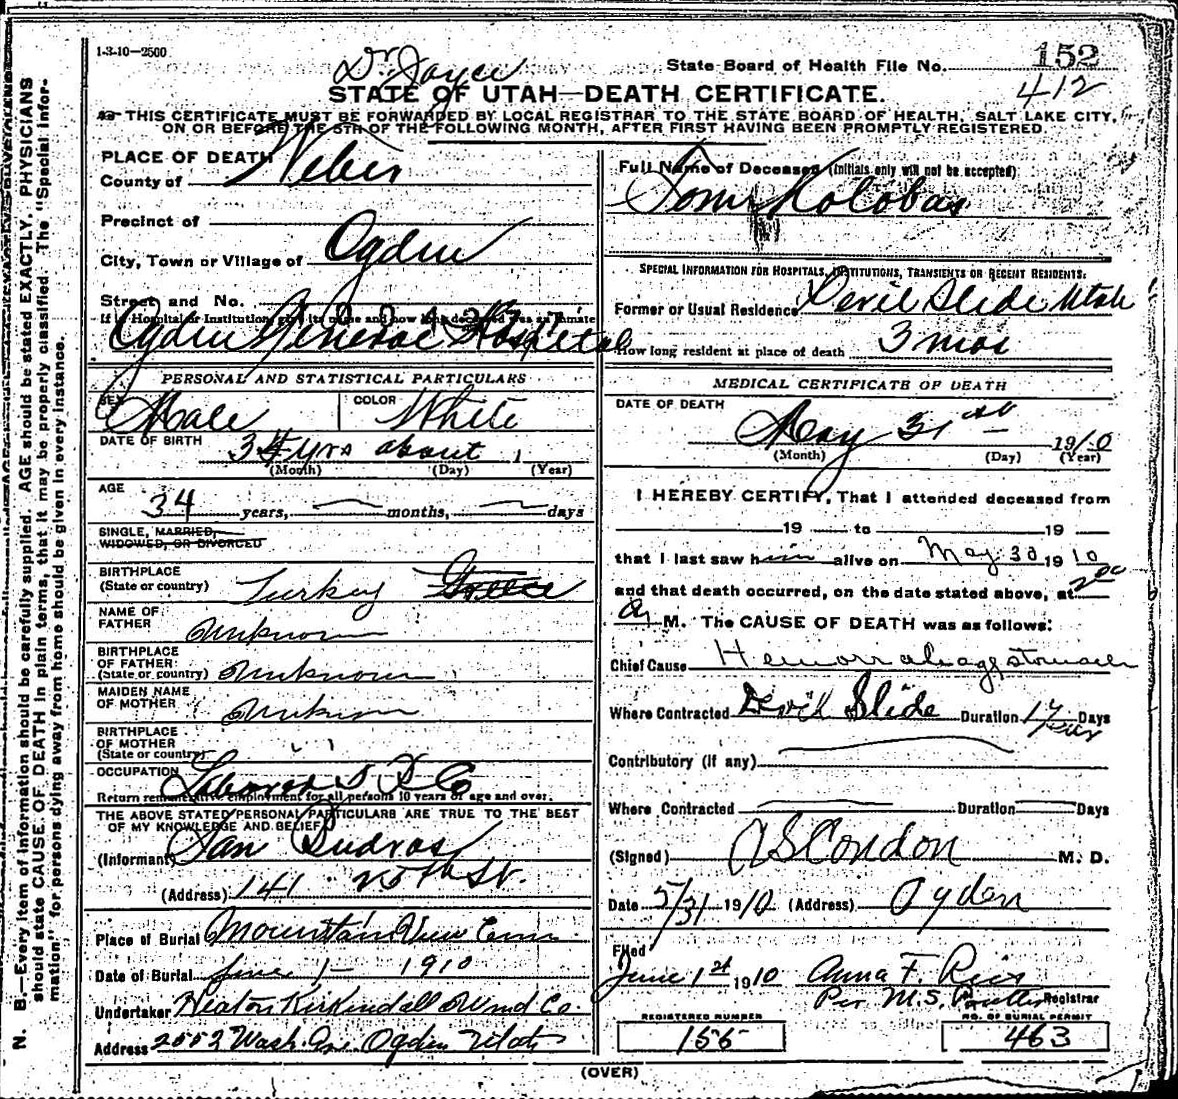 1-3-10-2500
Dr Joyce
State Board of Health File No. 152
412
STATE OF UTAH—DEATH CERTIFICATE.
THIS CERTIFICATE MUST BE FORWARDED BY LOCAL REGISTRAR TO THE STATE BOARD OF HEALTH, SALT LAKE CITY,
ON OR BEFORE THE 5TH OF THE FOLLOWING MONTH, AFTER FIRST HAVING BEEN PROMPTLY REGISTERED.
N. B.—Every item of information should be carefully supplied. AGE should be stated EXACTLY. PHYSICIANS
should state CAUSE OF DEATH in plain terms, that it may be properly classified. The "Special Infor-
mation" for persons dying away from home should be given in every instance.
PLACE OF DEATH
County of Weber
Precinct of
City, Town or Village of Ogden
Street and No.
If in Hospital or Institution, give its name and how long deceased was an inmate
Ogden General Hospital
PERSONAL AND STATISTICAL PARTICULARS
SEX Male COLOR White
DATE OF BIRTH 34 yrs about 1
(Month) (Day) (Year)
AGE
34 years, months, days
SINGLE, MARRIED,
WIDOWED, OR DIVORCED
BIRTHPLACE
(State or country) Turkey Greece
NAME OF
FATHER Unknown
BIRTHPLACE
OF FATHER
(State or country) Unknown
MAIDEN NAME
OF MOTHER Unknown
BIRTHPLACE
OF MOTHER
(State or country)
OCCUPATION Laborer
Return remunerative employment for all persons 10 years of age and over.
THE ABOVE STATED PERSONAL PARTICULARS ARE TRUE TO THE BEST
OF MY KNOWLEDGE AND BELIEF
(Informant) Sam
(Address) 141 25th St.
Place of Burial Mountain View Cem
Date of Burial June 1- 1910
Undertaker Heaton Kirkendall Und Co.
Address 2553 Wash. Ave Ogden Utah
Full Name of Deceased (Initials only will not be accepted)
Tom Kolobas
SPECIAL INFORMATION FOR HOSPITALS, INSTITUTIONS, TRANSIENTS OR RECENT RESIDENTS:
Former or Usual Residence Devil Slide Utah
How long resident at place of death 3 mos
MEDICAL CERTIFICATE OF DEATH
DATE OF DEATH
May 31st 1910
(Month) (Day) (Year)
I HEREBY CERTIFY, That I attended deceased from
19 to 19
that I last saw him alive on May 30 1910
and that death occurred, on the date stated above, at 2 00
a M. The CAUSE OF DEATH was as follows:
Chief Cause Hemorrahage stomach
Where Contracted Devil Slide Duration Days
Contributory (if any)
Where Contracted Duration Days
(Signed) A S Condon M. D.
Date 5/31 1910 (Address) Ogden
Filed
June 1st 1910 Anna F. Reis
Per M.S. Registrar
REGISTERED NUMBER NO. OF BURIAL PERMIT
156 463
(OVER)